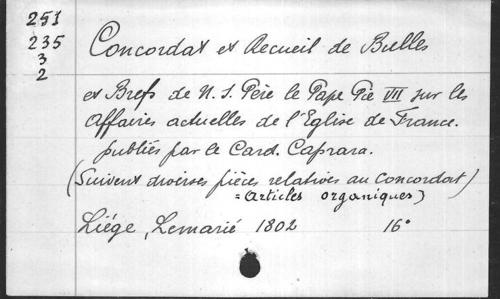 251
235
3
2
Concordat et Recueil de Bulles
et Brefs de N. S. Père le Pape Pie VII sur les
affaires actuelles de l'Eglise de France.
publiés par le Card. Caprara.
(Suivent diverses pièces relatives au Concordat)
= articles organiques)
Liége, Lemarié 1802 16°